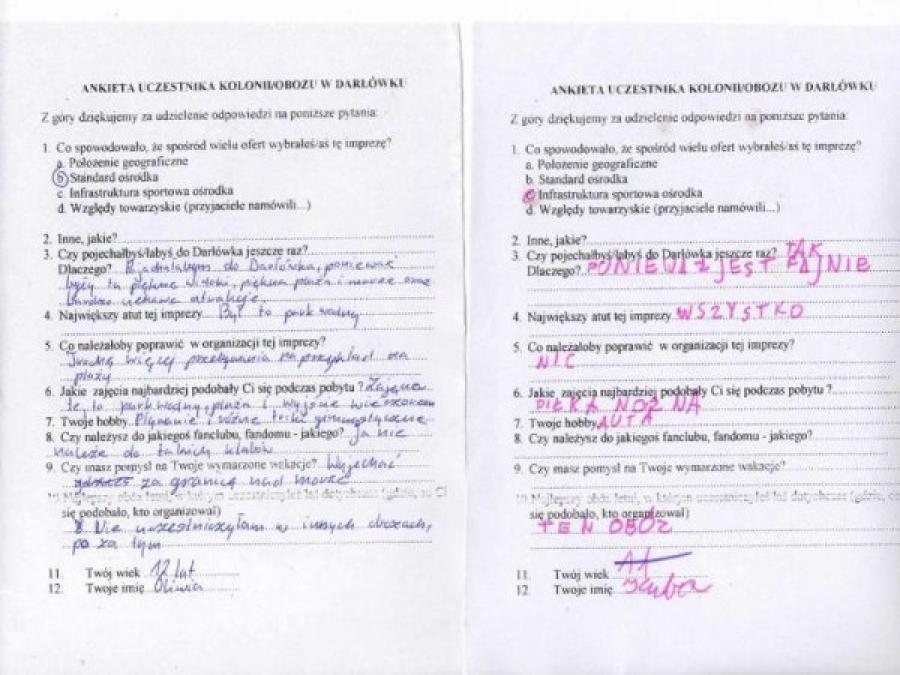 ANKIETA UCZESTNIKA KOLONII/OBOZU W DARŁÓWKU
Z góry dziękujemy za udzielenie odpowiedzi na poniższe pytania:
1. Co spowodowało, że spośród wielu ofert wybrałeś/aś tę imprezę?
a. Położenie geograficzne
b. Standard ośrodka
c. Infrastruktura sportowa ośrodka
d. Względy towarzyskie (przyjaciele namówili...)
2. Inne, jakie?
3. Czy pojechałbyś/łabyś do Darłówka jeszcze raz?
Dlaczego? do Darłówka, ponieważ
były tu piękne widoki, piękna plaża i morze oraz
bardzo ciekawe atrakcje.
4. Największy atut tej imprezy Był to park wodny
5. Co należałoby poprawić w organizacji tej imprezy?
więcej na przykład na
plaży
6. Jakie zajęcia najbardziej podobały Ci się podczas pobytu? Zajęcia
te, to park wodny, plaża i wyjście wieczorem
7. Twoje hobby Pływanie i różne gimnastyczne
8. Czy należysz do jakiegoś fanclubu, fandomu - jakiego? Ja nie
należę do takich klubów
9. Czy masz pomysł na Twoje wymarzone wakacje? Wyjechać
za granicę nad morze
10. Najlepszy obóz letni, w którym uczestniczyłeś/łaś dotychczas (gdzie, co Ci
się podobało, kto organizował)
Nie uczestniczyłam w innych obozach,
po za tym
11. Twój wiek 12 lat
12. Twoje imię Oliwia
ANKIETA UCZESTNIKA KOLONII/OBOZU W DARŁÓWKU
Z góry dziękujemy za udzielenie odpowiedzi na poniższe pytania:
1. Co spowodowało, że spośród wielu ofert wybrałeś/aś tę imprezę?
a. Położenie geograficzne
b. Standard ośrodka
c. Infrastruktura sportowa ośrodka
d. Względy towarzyskie (przyjaciele namówili...)
2. Inne, jakie?
3. Czy pojechałbyś/łabyś do Darłówka jeszcze raz? TAK
Dlaczego? PONIEWAŻ JEST FAJNIE
4. Największy atut tej imprezy WSZYSTKO
5. Co należałoby poprawić w organizacji tej imprezy?
NIC
6. Jakie zajęcia najbardziej podobały Ci się podczas pobytu ?
PIŁKA NOŻNA
7. Twoje hobby AUTA
8. Czy należysz do jakiegoś fanclubu, fandomu - jakiego?
9. Czy masz pomysł na Twoje wymarzone wakacje?
10. Najlepszy obóz letni, w którym uczestniczyłeś/łaś dotychczas (gdzie, co
się podobało, kto organizował)
TEN OBÓZ
11. Twój wiek 11
12. Twoje imię Kuba